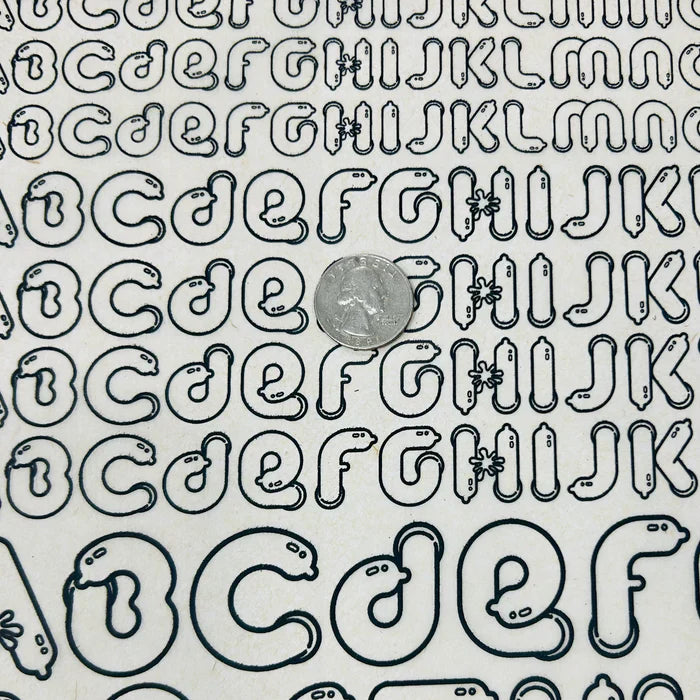 ABCdeFGHIJKLmno
ABCdeFGHIJKLmno
ABCdeFGHIJKLmno
ABCdeFGHIJK
ABCdeFGHIJK
ABCdeFGHIJK
ABCdeFGHIJK
ABCdeF